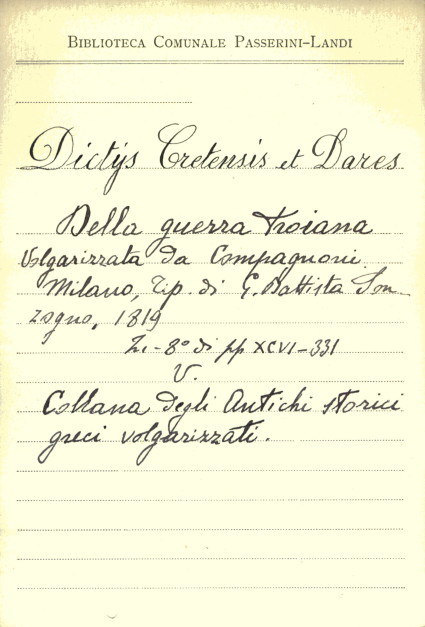 BIBLIOTECA COMUNALE PASSERINI-LANDI
Dictys Cretensis et Dares
Della guerra troiana
Volgarizzata da Compagnoni
Milano, Tip. di G. Battista Son
zogno, 1819
In-8° di pp XCVI-331
V.
Collana degli Antichi storici
greci volgarizzati.